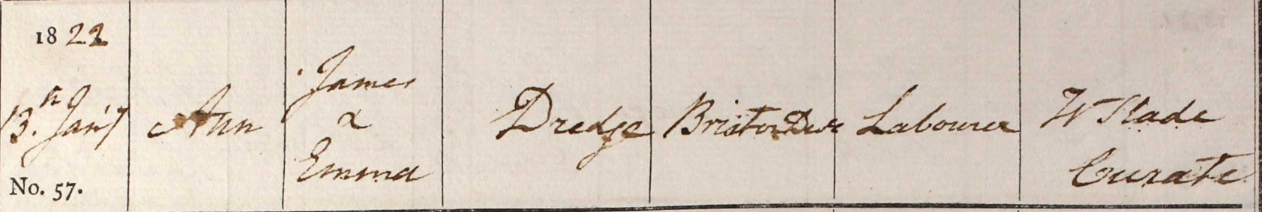 1822
13.th Jany
No. 57.
Ann
James
&
Emma
Dredge
Labourer
W Slade
Curate